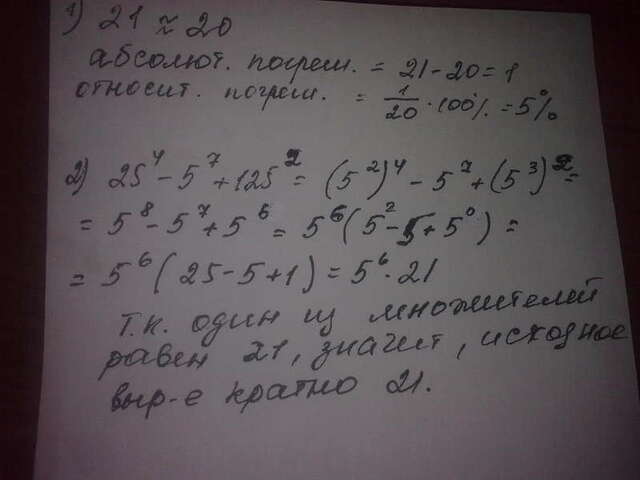 1) 21 ≈ 20
абсолют. погреш. = 21 - 20 = 1
относит. погреш. = 1/20 · 100% = 5%
2) 25⁴ - 5⁷ + 125² = (5²)⁴ - 5⁷ + (5³)² =
= 5⁸ - 5⁷ + 5⁶ = 5⁶(5² - 5 + 5⁰) =
= 5⁶(25 - 5 + 1) = 5⁶ · 21
Т.к. один из множителей
равен 21, значит, исходное
выр-е кратно 21.